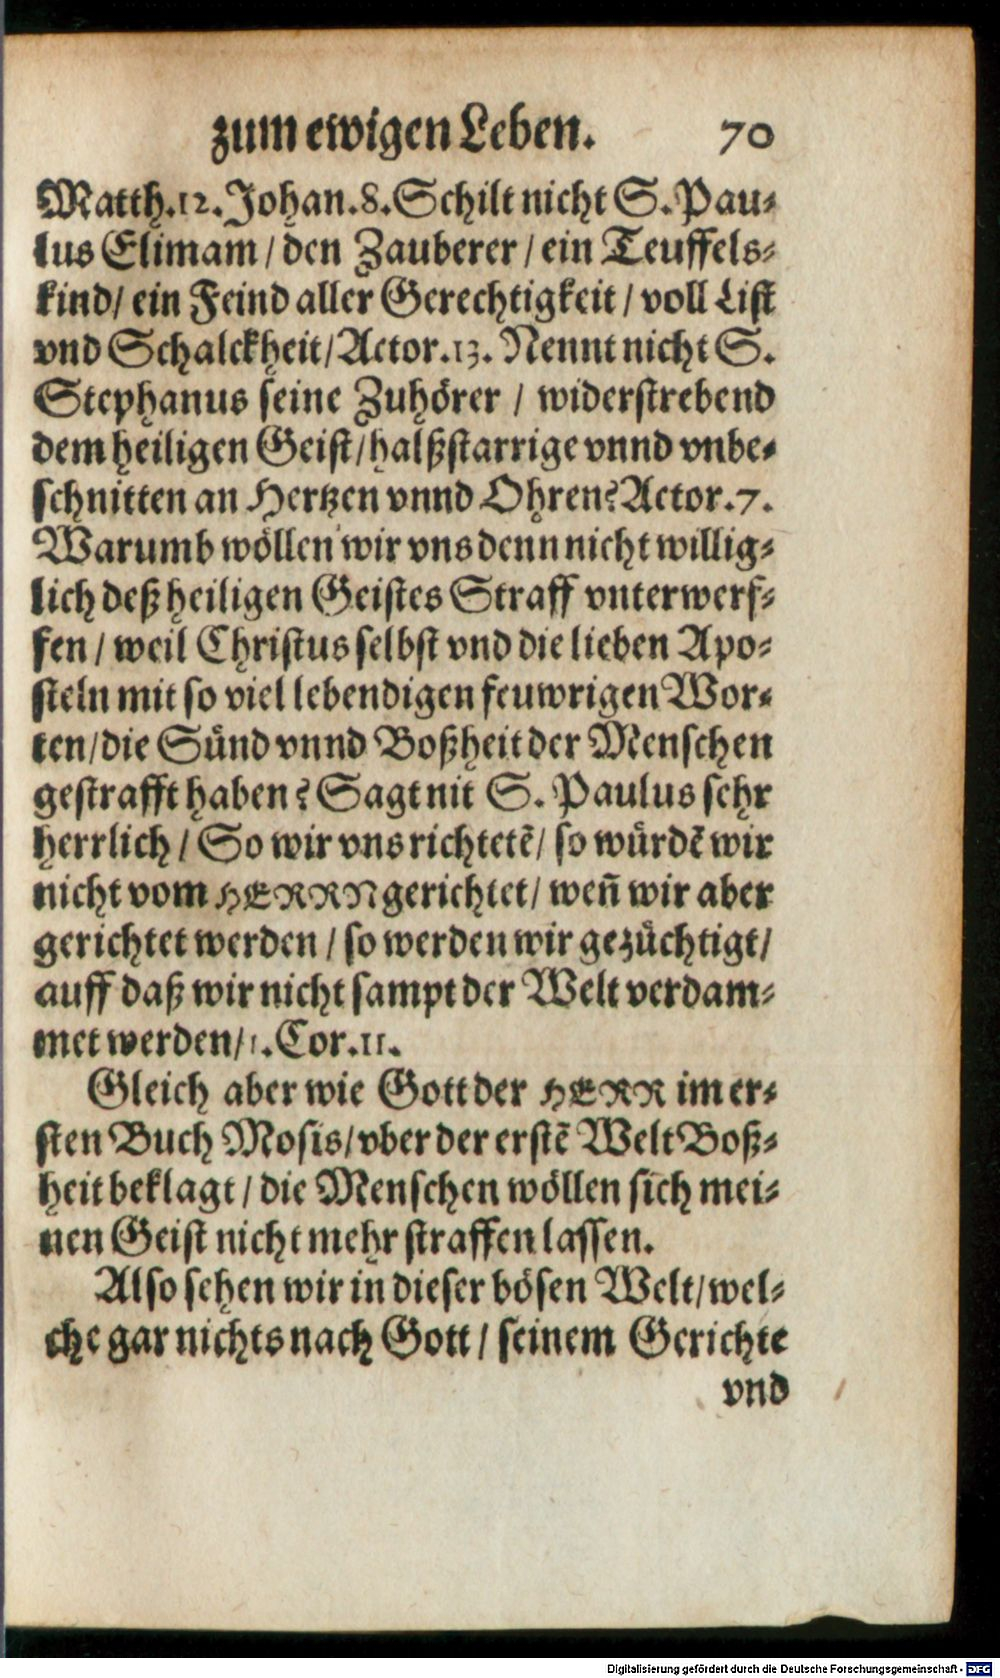 zum ewigen Leben. 70
Matth.12. Johan.8. Schilt nicht S. Pau-
lus Elimam / den Zauberer / ein Teuffels-
kind / ein Feind aller Gerechtigkeit / voll List
vnd Schalckheit / Actor.13. Nennt nicht S.
Stephanus seine Zuhörer / widerstrebend
dem heiligen Geist / halßstarrige vnnd vnbe-
schnitten an Hertzen vnnd Ohren? Actor.7.
Warumb wöllen wir vns denn nicht willig-
lich deß heiligen Geistes Straff vnterwerf-
fen / weil Christus selbst vnd die lieben Apo-
steln mit so viel lebendigen feuwrigen Wor-
ten / die Sünd vnnd Boßheit der Menschen
gestrafft haben? Sagt nit S. Paulus sehr
herrlich / So wir vns richtetē / so würdē wir
nicht vom HERRN gerichtet / weñ wir aber
gerichtet werden / so werden wir gezüchtigt /
auff daß wir nicht sampt der Welt verdam-
met werden / 1. Cor.11.
Gleich aber wie Gott der HERR im er-
sten Buch Mosis / vber der erstē Welt Boß-
heit beklagt / die Menschen wöllen sich mei-
nen Geist nicht mehr straffen lassen.
Also sehen wir in dieser bösen Welt / wel-
che gar nichts nach Gott / seinem Gerichte
vnd
Digitalisierung gefördert durch die Deutsche Forschungsgemeinschaft - DFG